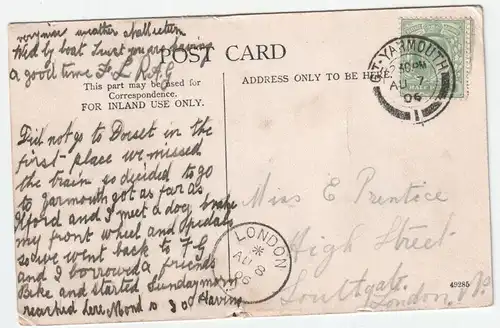 very nice weather shall return
Wed by boat Trust you are having
a good time F L R A G
POST CARD
This part may be used for
Correspondence.
FOR INLAND USE ONLY.
ADDRESS ONLY TO BE HERE.
GT. YARMOUTH
2.40PM
AU 7
06
1
HALF P
Did not go to Dorset in the
first place we missed
the train so decided to go
to Yarmouth got as far as
and I met a dog, broke
my front wheel and pedals
so we went back to F G
and I borrowed a friends
Bike and started Sunday morn
reached here Mond 10 30 Having
Miss E Prentice
High Street
Southgate
London. N.
LONDON
AU 8
06
49285